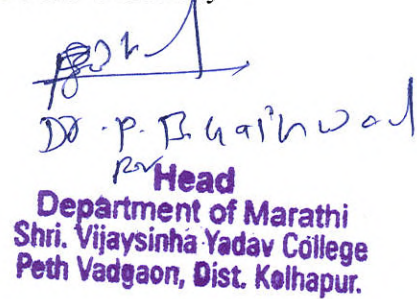 Dr. P. B. Gaikwad
Head
Department of Marathi
Shri. Vijaysinha Yadav College
Peth Vadgaon, Dist. Kolhapur.